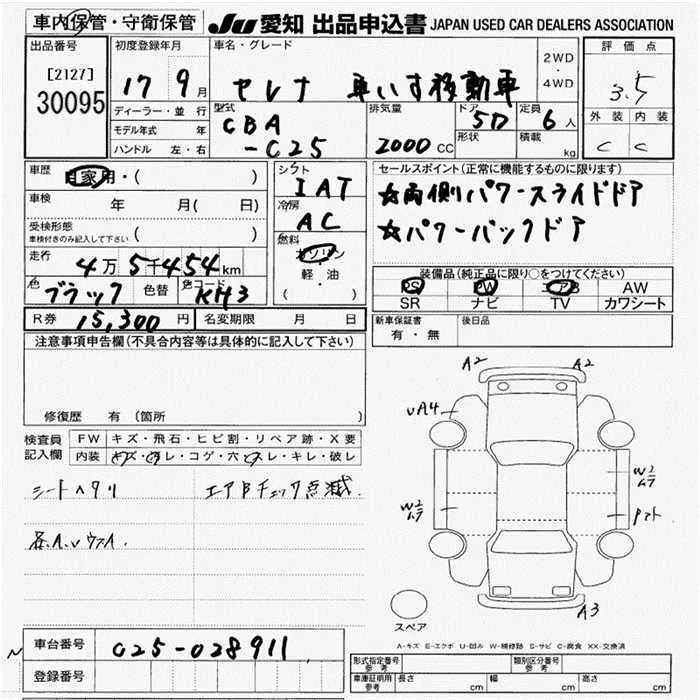 車内保管・守衛保管
JU 愛知 出品申込書 JAPAN USED CAR DEALERS ASSOCIATION
出品番号
[2127]
30095
初度登録年月
17 9月
ディーラー・並 行
モデル年式 年
ハンドル 左・右
車名・グレード
セレナ 車いす移動車
2WD
・
4WD
型式
CBA
-C25
排気量
2000 CC
ドア
5D
形状
定員
6人
積載
kg
評 価 点
3.5
外 装 内 装
C C
車歴
自家用・( )
車検
年 月( 日)
受検形態
車検付きのみ記入して下さい ( )
走行
4万5千454km
色
ブラック 色替 色コード KH3
シフト
IAT
冷房
AC
燃料
ガソリン
・
軽・油
( )
セールスポイント(正常に機能するものに限ります)
☆両側パワースライドドア
☆パワーバックドア
装備品(純正品に限り○をつけてください)
PS PW エアB AW
SR ナビ TV カワシート
R券 15,300 円 名変期限 月 日
新車保証書
有・無
後日品
注意事項申告欄(不具合内容等は具体的に記入して下さい)
修復歴 有 (箇所 )
検査員
記入欄
FW キズ・飛石・ヒビ割・リペア跡・X要
内装 キズ・ヨゴレ・コゲ・穴・スレ・キレ・破レ
シートヘタリ エアBチェック点滅.
各.A.U ウアA.
A2 A2
UA4
W2
W2
A3
スペア
A-キズ E-エクボ U-凹み W-補修跡 S-サビ C-腐食 XX-交換済
車台番号 C25-028911
登録番号
形式指定番号
参考
類別区分番号
参考
車庫証明用
参考
長さ cm 幅 cm 高さ cm